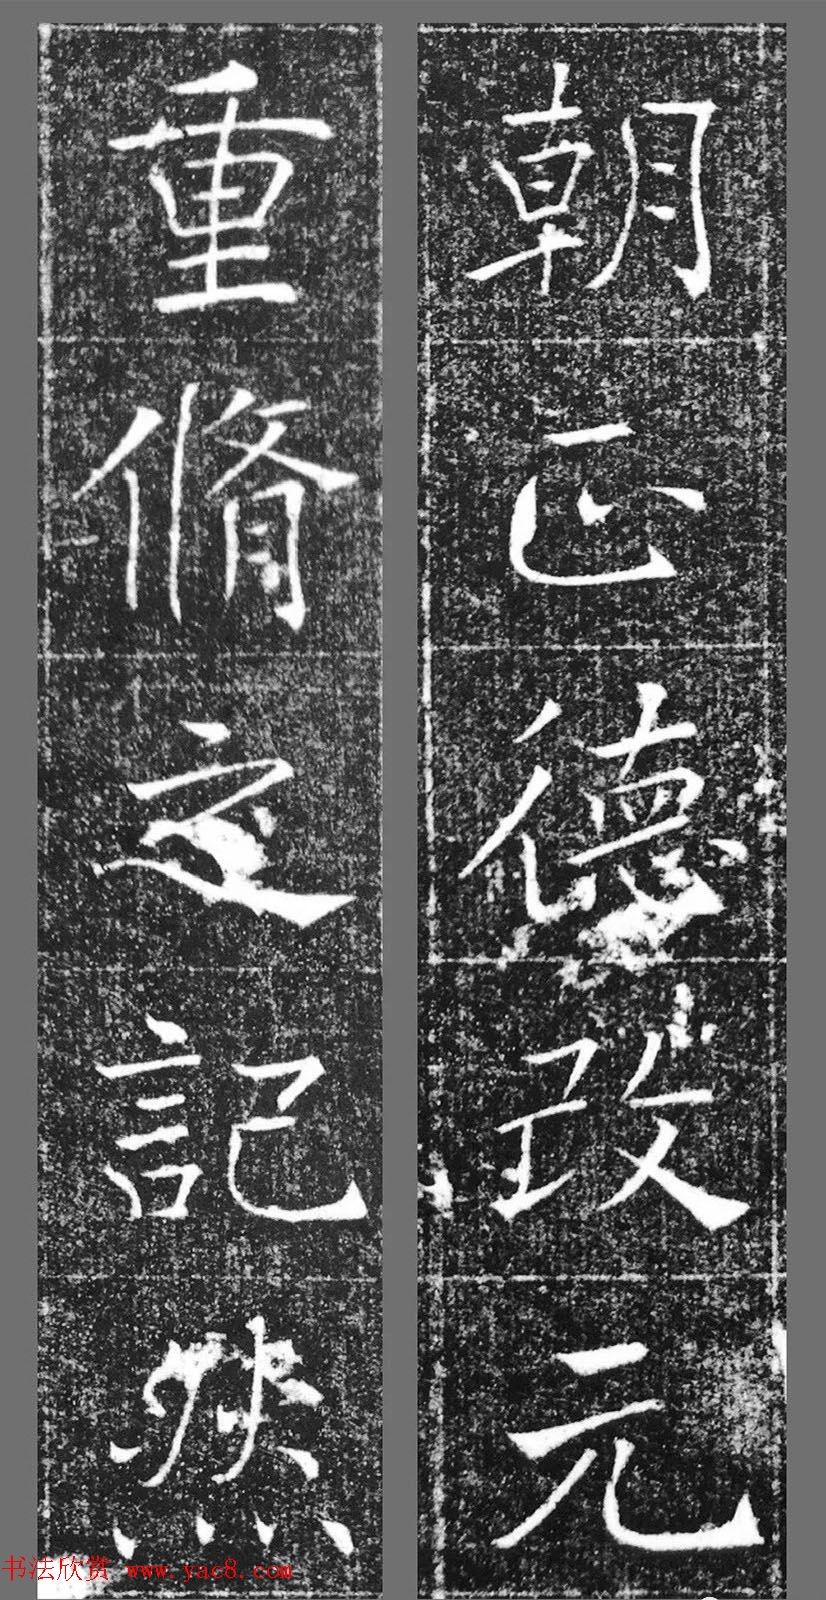 朝正德改元
重脩之記然
书法欣赏 www.yac8.com